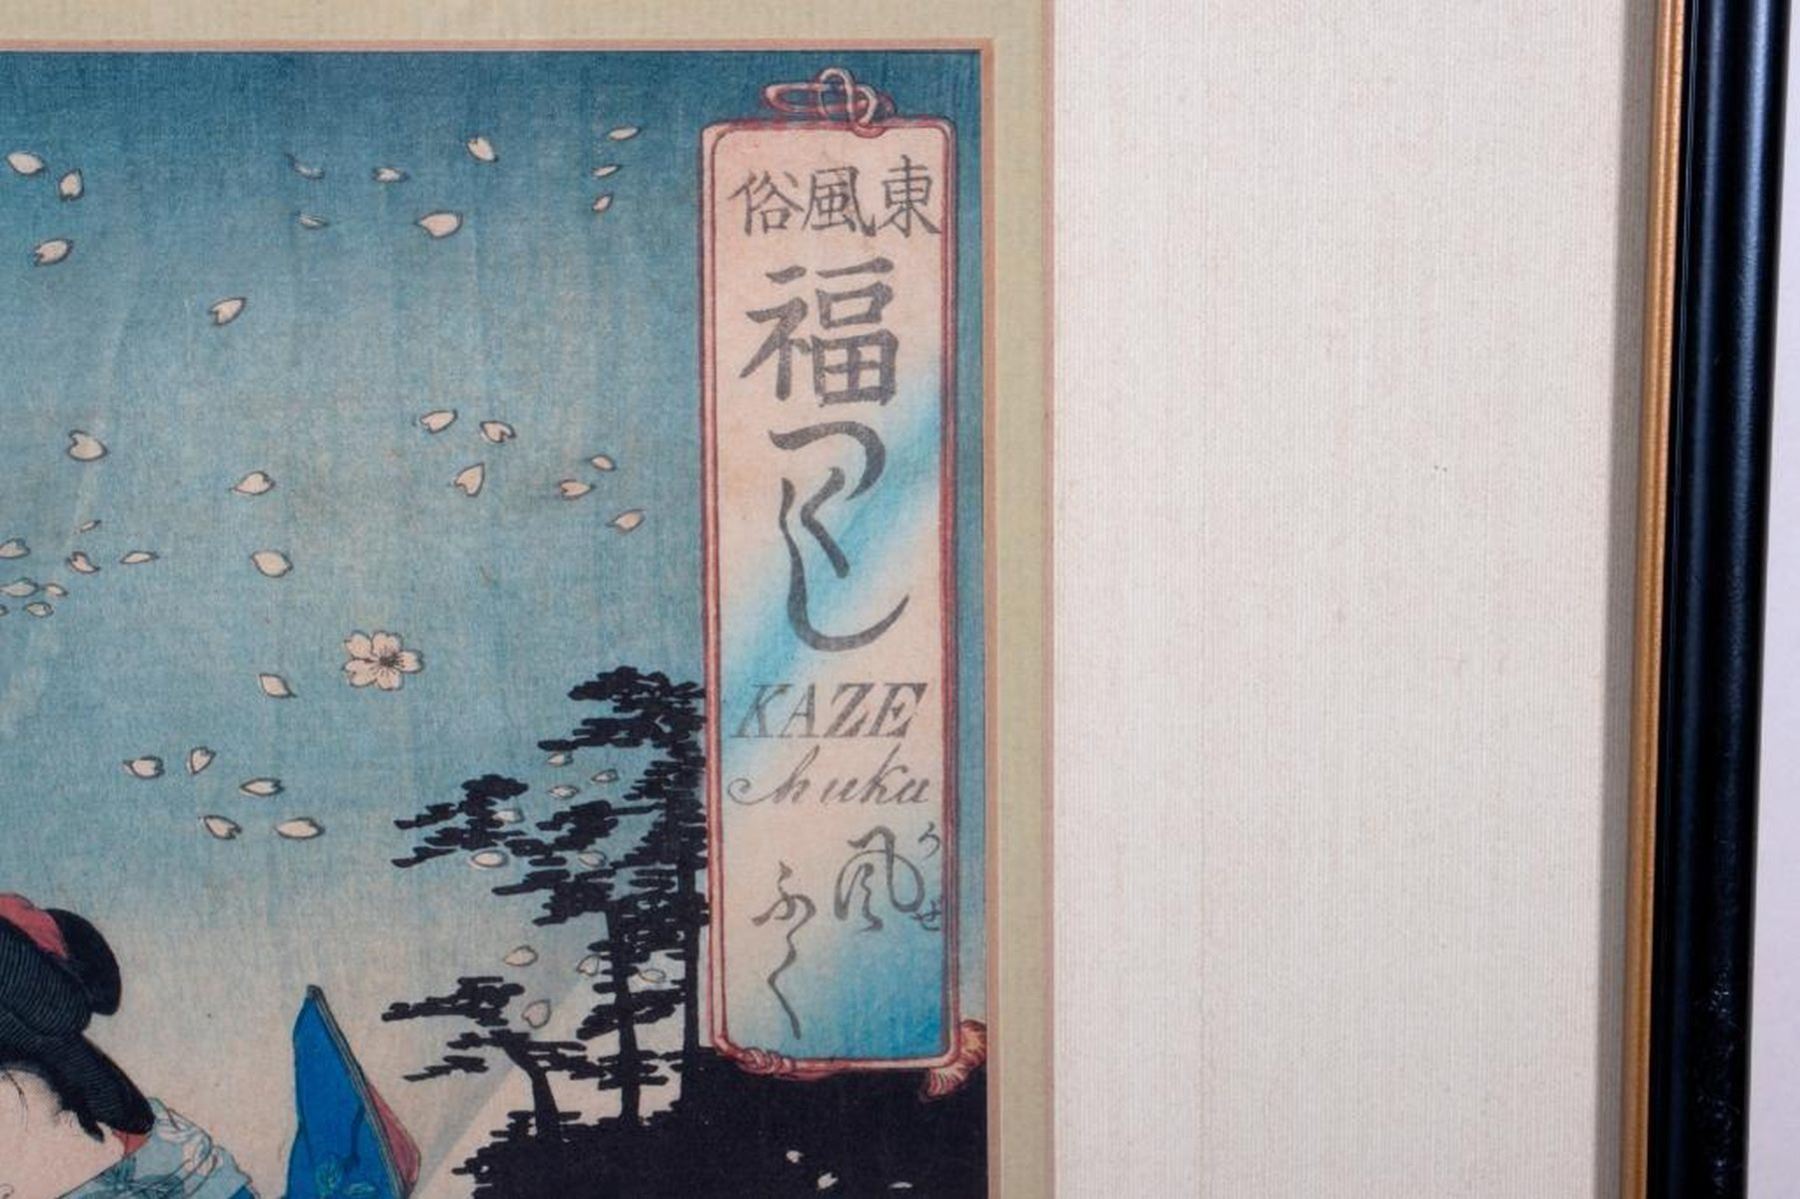 東風俗
福つくし
KAZE
huku
風
かぜ
ふく